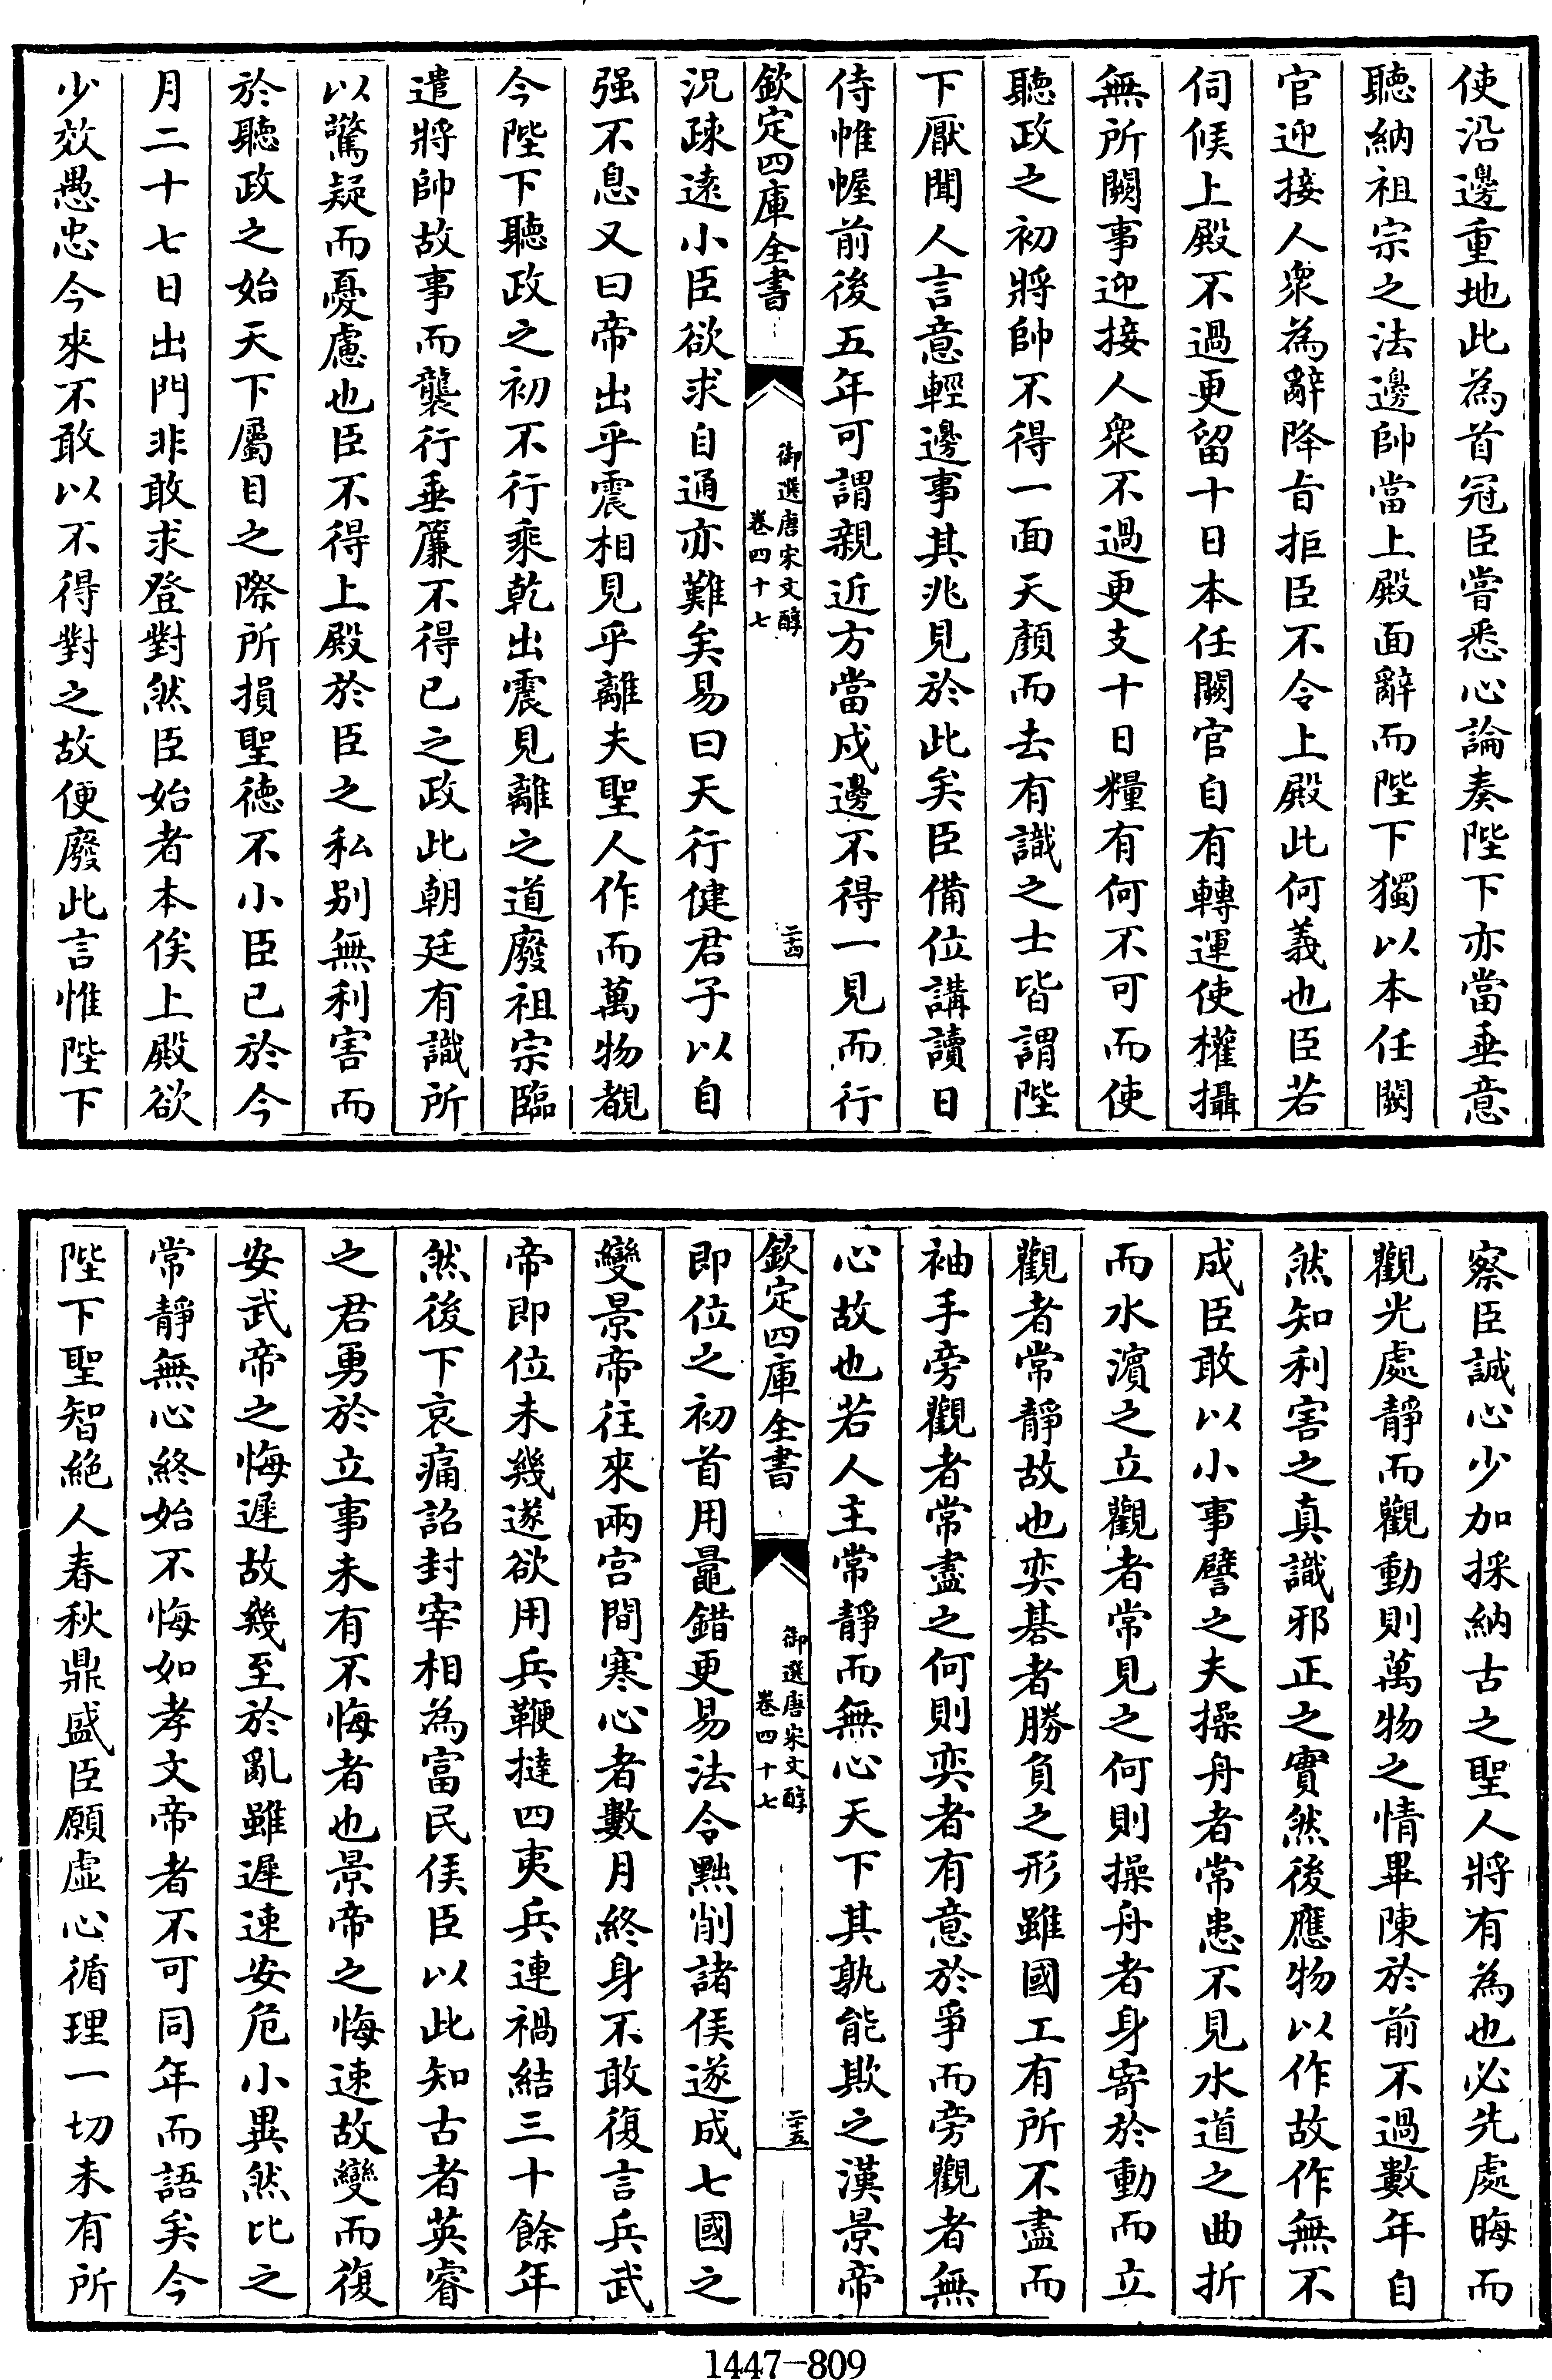 使沿邊重地此為首冠臣嘗悉心論奏陛下亦當垂意
聽納祖宗之法邊帥當上殿面辭而陛下獨以本任闕
官迎接人衆為辭降旨拒臣不令上殿此何義也臣若
伺候上殿不過更留十日本任闕官自有轉運使權攝
無所闕事迎接人衆不過更支十日糧有何不可而使
聽政之初將帥不得一面天顏而去有識之士皆謂陛
下厭聞人言意輕邊事其兆見於此矣臣備位講讀日
侍帷幄前後五年可謂親近方當戍邊不得一見而行
欽定四庫全書
御選唐宋文醇
卷四十七
二十四
況疎遠小臣欲求自通亦難矣易曰天行健君子以自
强不息又曰帝出乎震相見乎離夫聖人作而萬物覩
今陛下聽政之初不行乘乾出震見離之道廢祖宗臨
遣將帥故事而襲行垂簾不得已之政此朝廷有識所
以驚疑而憂慮也臣不得上殿於臣之私别無利害而
於聽政之始天下屬目之際所損聖徳不小臣已於今
月二十七日出門非敢求登對然臣始者本俟上殿欲
少效愚忠今來不敢以不得對之故便廢此言惟陛下
察臣誠心少加採納古之聖人將有為也必先處晦而
觀光處靜而觀動則萬物之情畢陳於前不過數年自
然知利害之真識邪正之實然後應物以作故作無不
成臣敢以小事譬之夫操舟者常患不見水道之曲折
而水濵之立觀者常見之何則操舟者身寄於動而立
觀者常靜故也奕碁者勝負之形雖國工有所不盡而
袖手旁觀者常盡之何則奕者有意於爭而旁觀者無
心故也若人主常靜而無心天下其孰能欺之漢景帝
欽定四庫全書
御選唐宋文醇
卷四十七
二十五
即位之初首用鼂錯更易法令黜削諸侯遂成七國之
變景帝往來兩宫間寒心者數月終身不敢復言兵武
帝即位未幾遂欲用兵鞭撻四夷兵連禍結三十餘年
然後下哀痛詔封宰相為富民侯臣以此知古者英睿
之君勇於立事未有不悔者也景帝之悔速故變而復
安武帝之悔遲故幾至於亂雖遲速安危小異然比之
常靜無心終始不悔如孝文帝者不可同年而語矣今
陛下聖智絶人春秋鼎盛臣願虚心循理一切未有所
1447-809